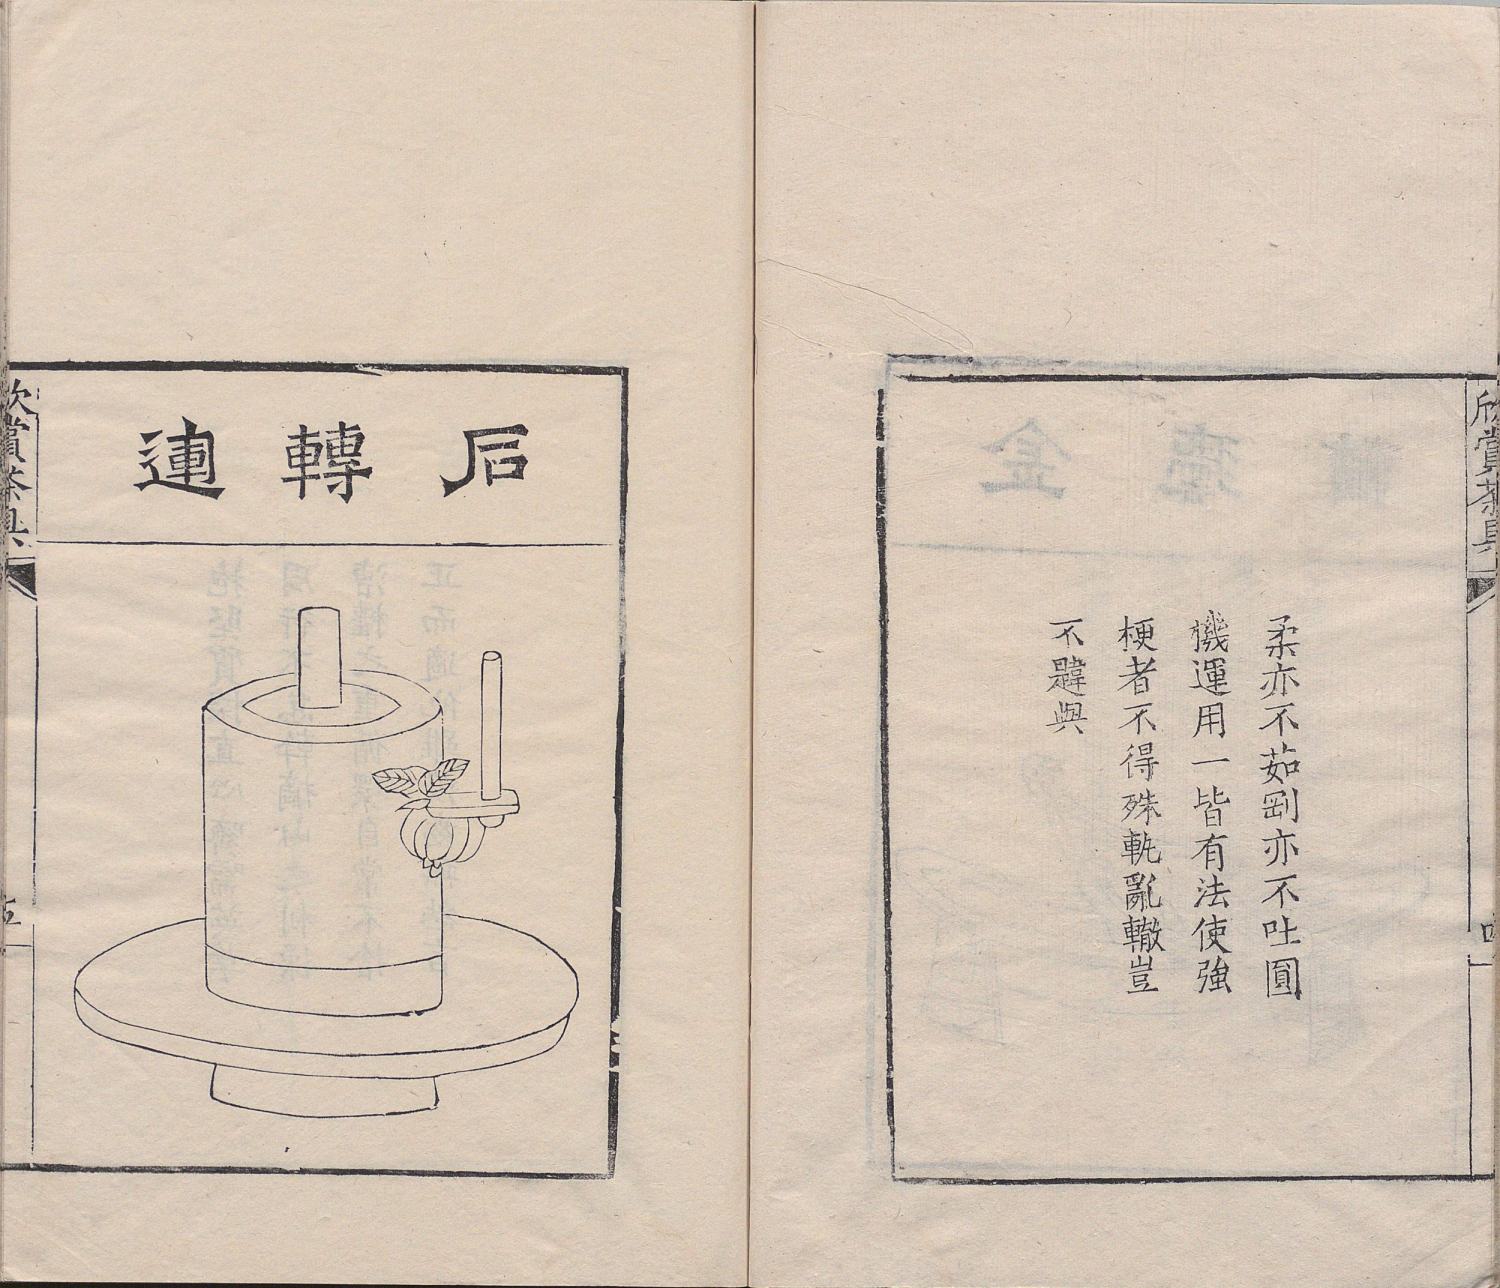 欣賞茶具
柔亦不茹剛亦不吐圓
機運用一皆有法使強
梗者不得殊軌亂轍豈
不韙與
石轉運
欣賞茶具
五